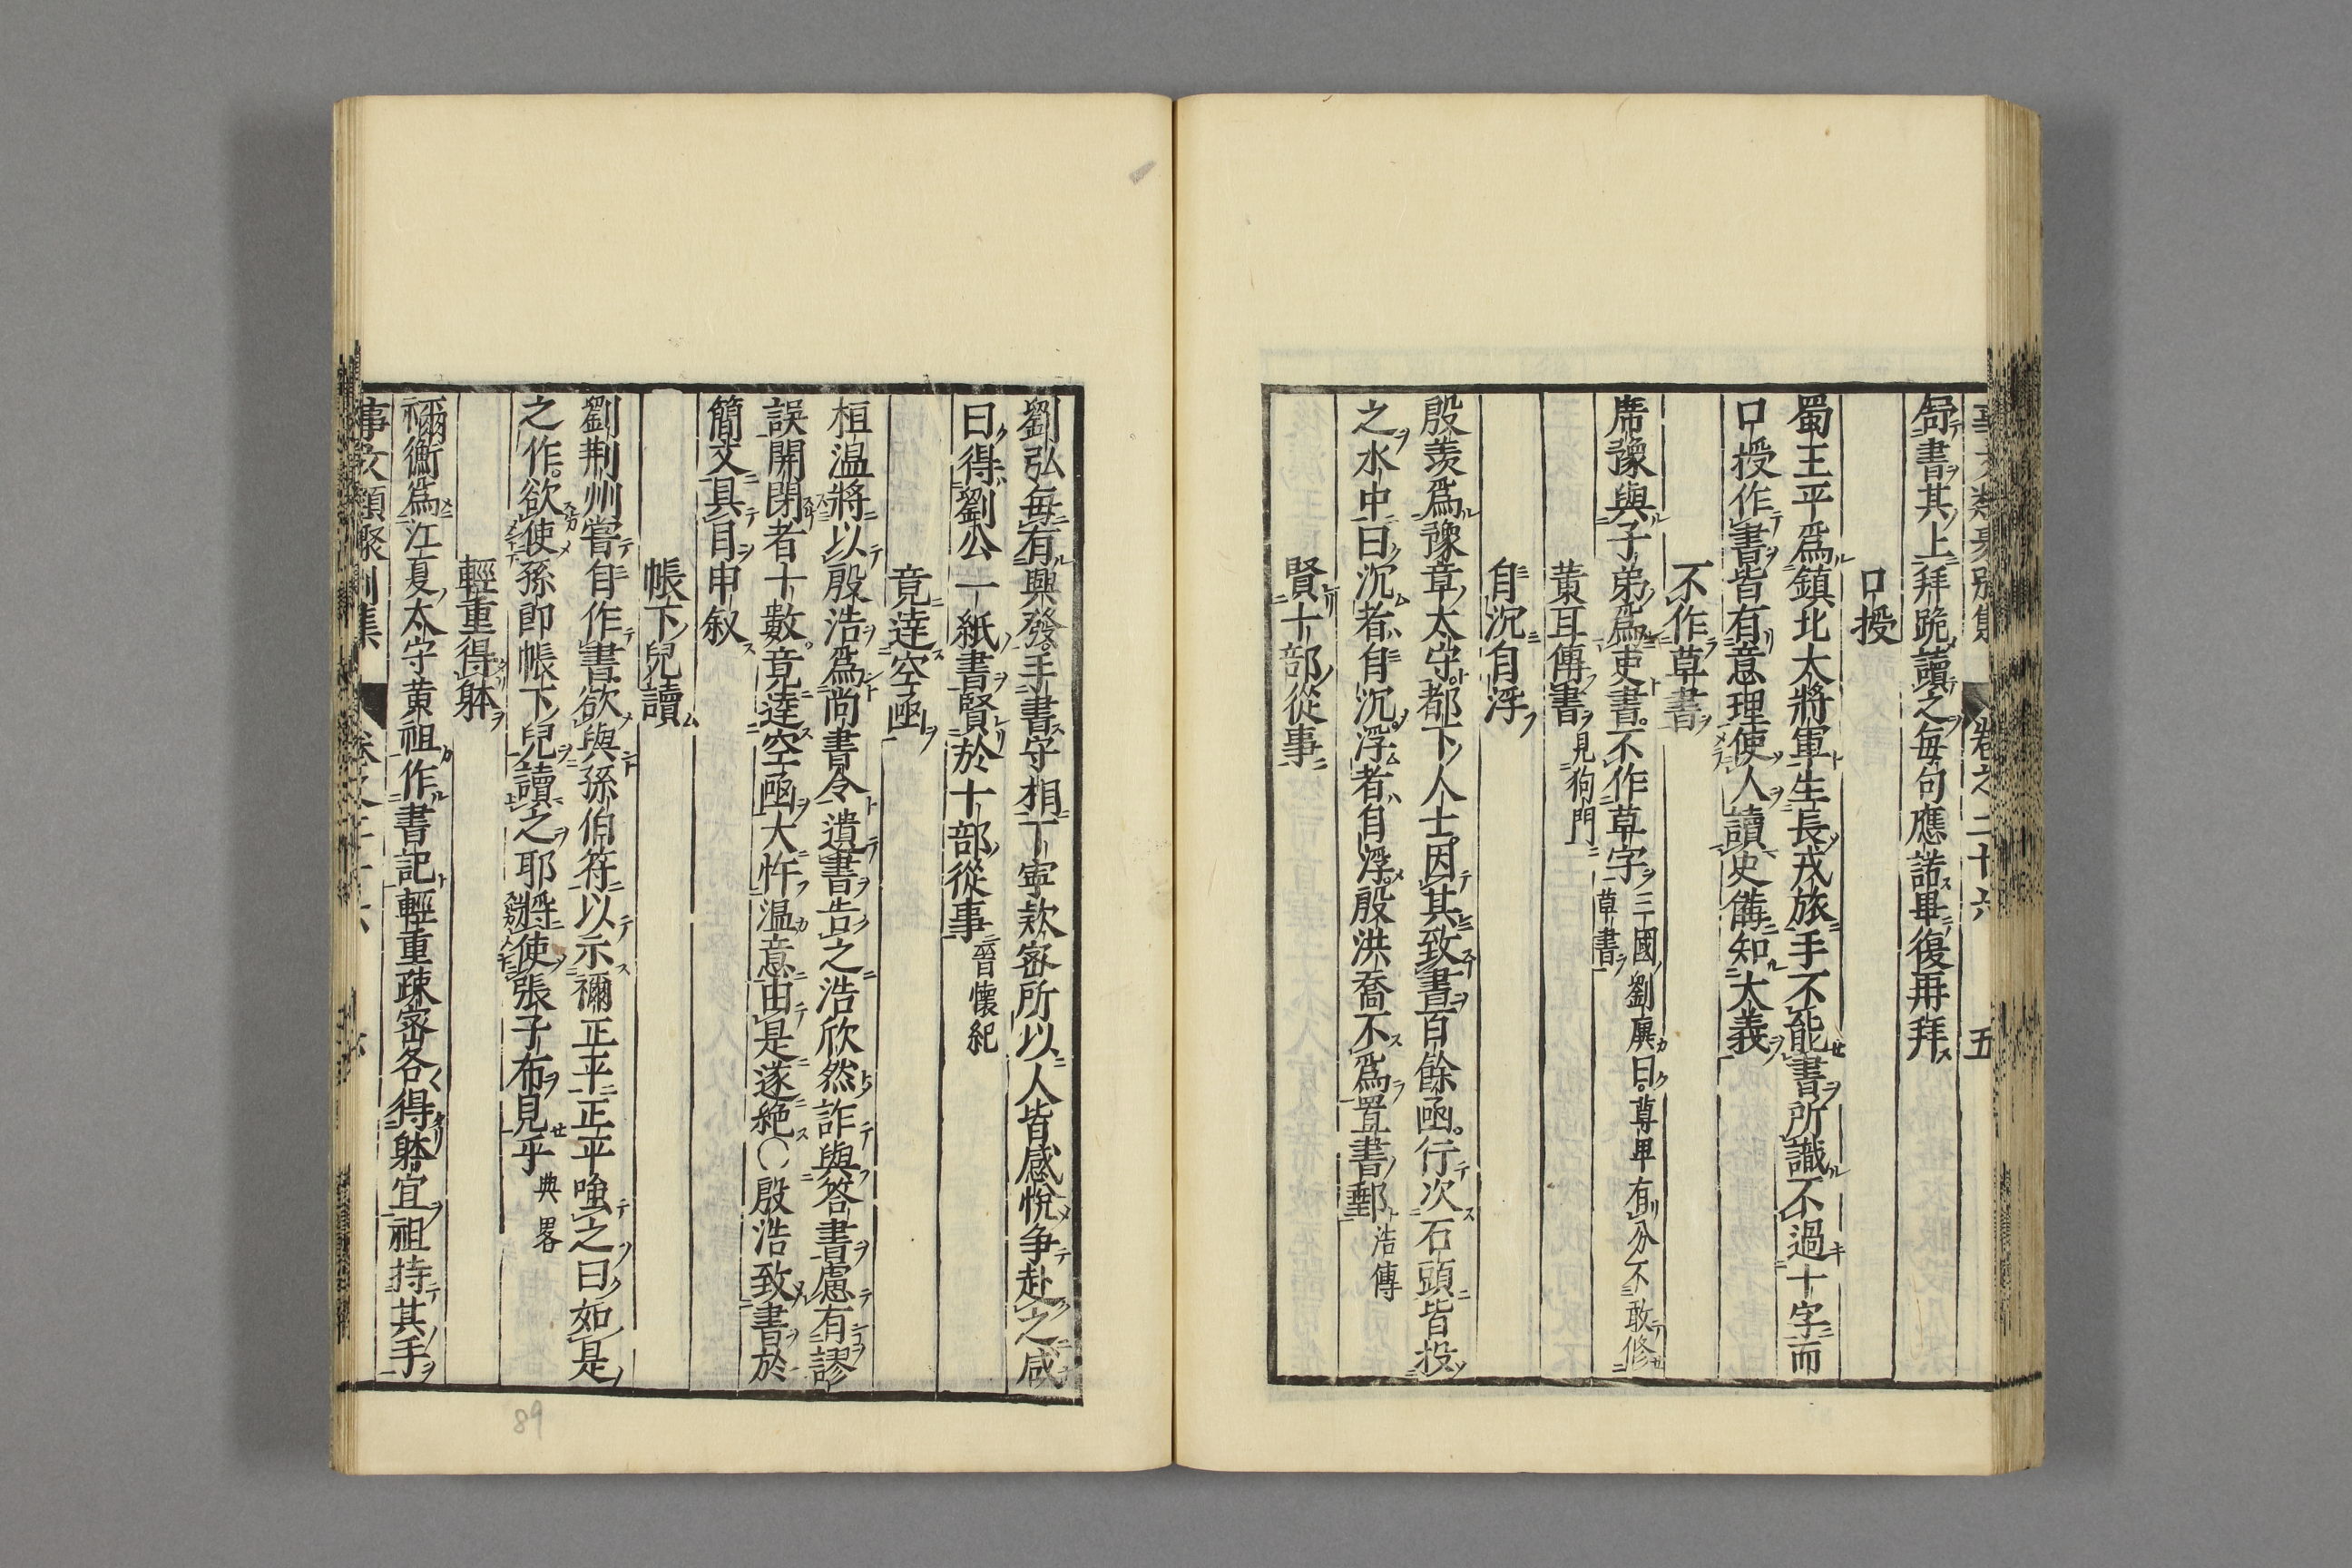 局書其上拜跪讀之每句應諾畢復再拜
口授
蜀王平爲鎮北大將軍生長戎旅手不能書所識不過十字而
口授作書皆有意理使人讀史備知大義
不作草書
席豫與子弟爲吏書不作草字三國劉廙曰尊卑有分不敢修草書
黃耳傳書見狗門
自沉自浮
殷羡爲豫章太守都下人士因其致書百餘函行次石頭皆投
之水中曰沉者自沉浮者自浮殷洪喬不爲置書郵浩傳
賢十部從事
劉弘每有興發手書守相丁寧欵密所以人皆感悅争赴之咸
曰得劉公一紙書賢於十部從事晉懷紀
竟達空函
桓温將以殷浩爲尚書令遺書告之浩欣然詐與答書慮有謬
誤開閉者十數竟達空函大忤温意由是遂絶〇殷浩致書於
簡文具自申叙
帳下兒讀
劉荆州嘗自作書欲與孫伯符以示禰正平正平嗤之曰如是
之作欲使孫郎帳下兒讀之耶將使張子布見乎典畧
輕重得躰
禰衡爲江夏太守黄祖作書記輕重疎密各得躰宜祖持其手